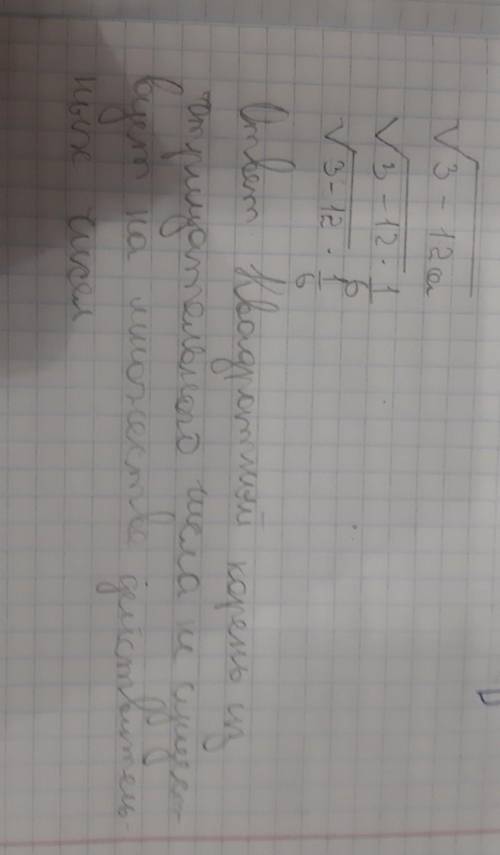 √3 - 12a
√3 - 12 · 1/6
√3 - 12 · 1/6
Ответ: Квадратный корень из
отрицательного числа не сущест-
вует на множестве действитель-
ных чисел